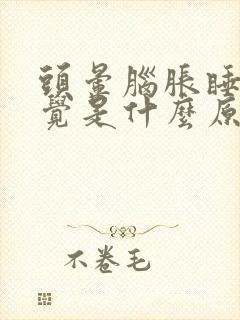 頭暈腦脹睡
覺是什麼原
不卷毛